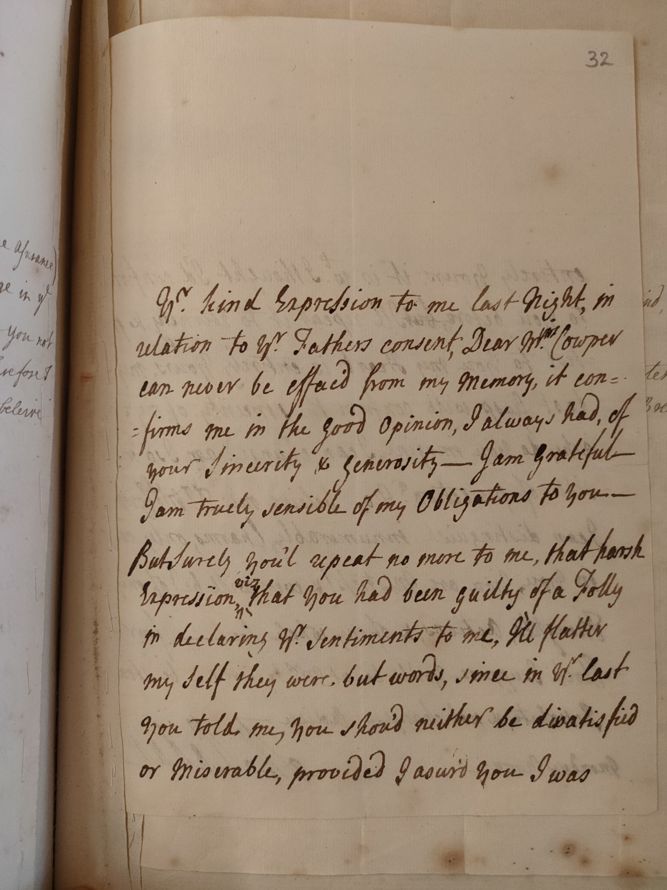 32
Yr. kind Expression to me last Night, in
relation to Yr. Fathers consent, Dear Mrs. Cowper
can never be effac'd from my Memory, it con=
=firms me in the good Opinion, I always had, of
your Sincerity & generosity— I am Grateful—
I am truely sensible of my Obligations to you—
But surely you'l repeat no more to me, that harsh
Expression, viz that you had been guilty of a Folly
in declaring Yr. sentiments to me, I'll flatter
my self they were but words, since in Yr. last
you told me, you shou'd neither be disatisfied
or Miserable, provided I asur'd you I was
ge in yt
you not
beleive